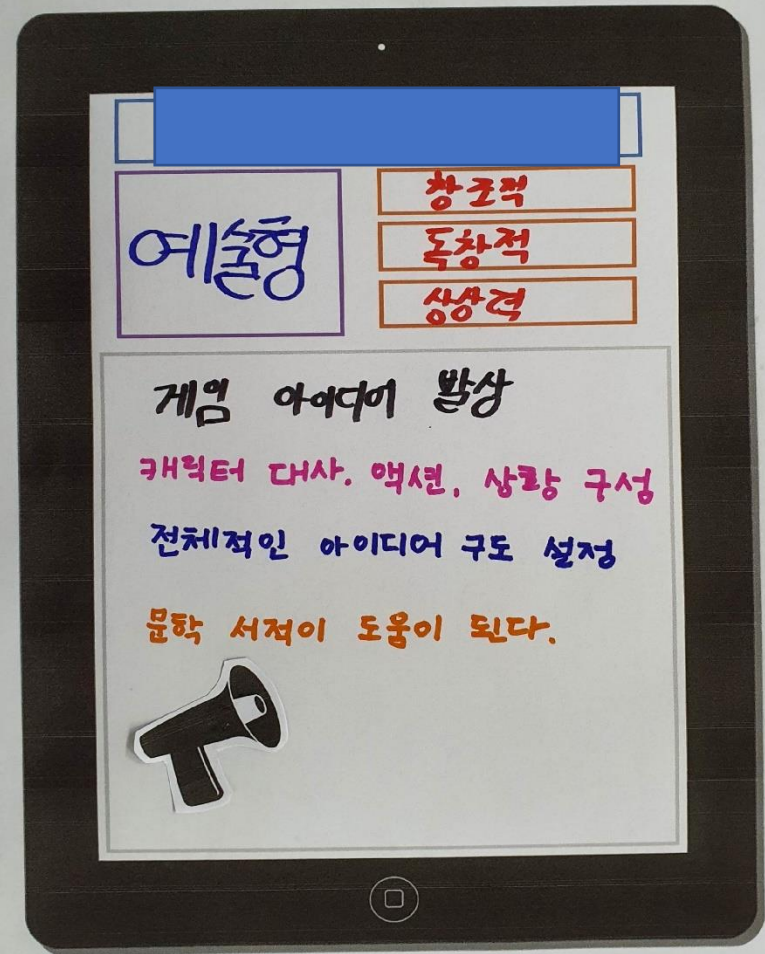 예술형
창조적
독창적
상상력
게임 아이디어 발상
캐릭터 대사. 액션, 상황 구성
전체적인 아이디어 구도 설정
문학 서적이 도움이 된다.